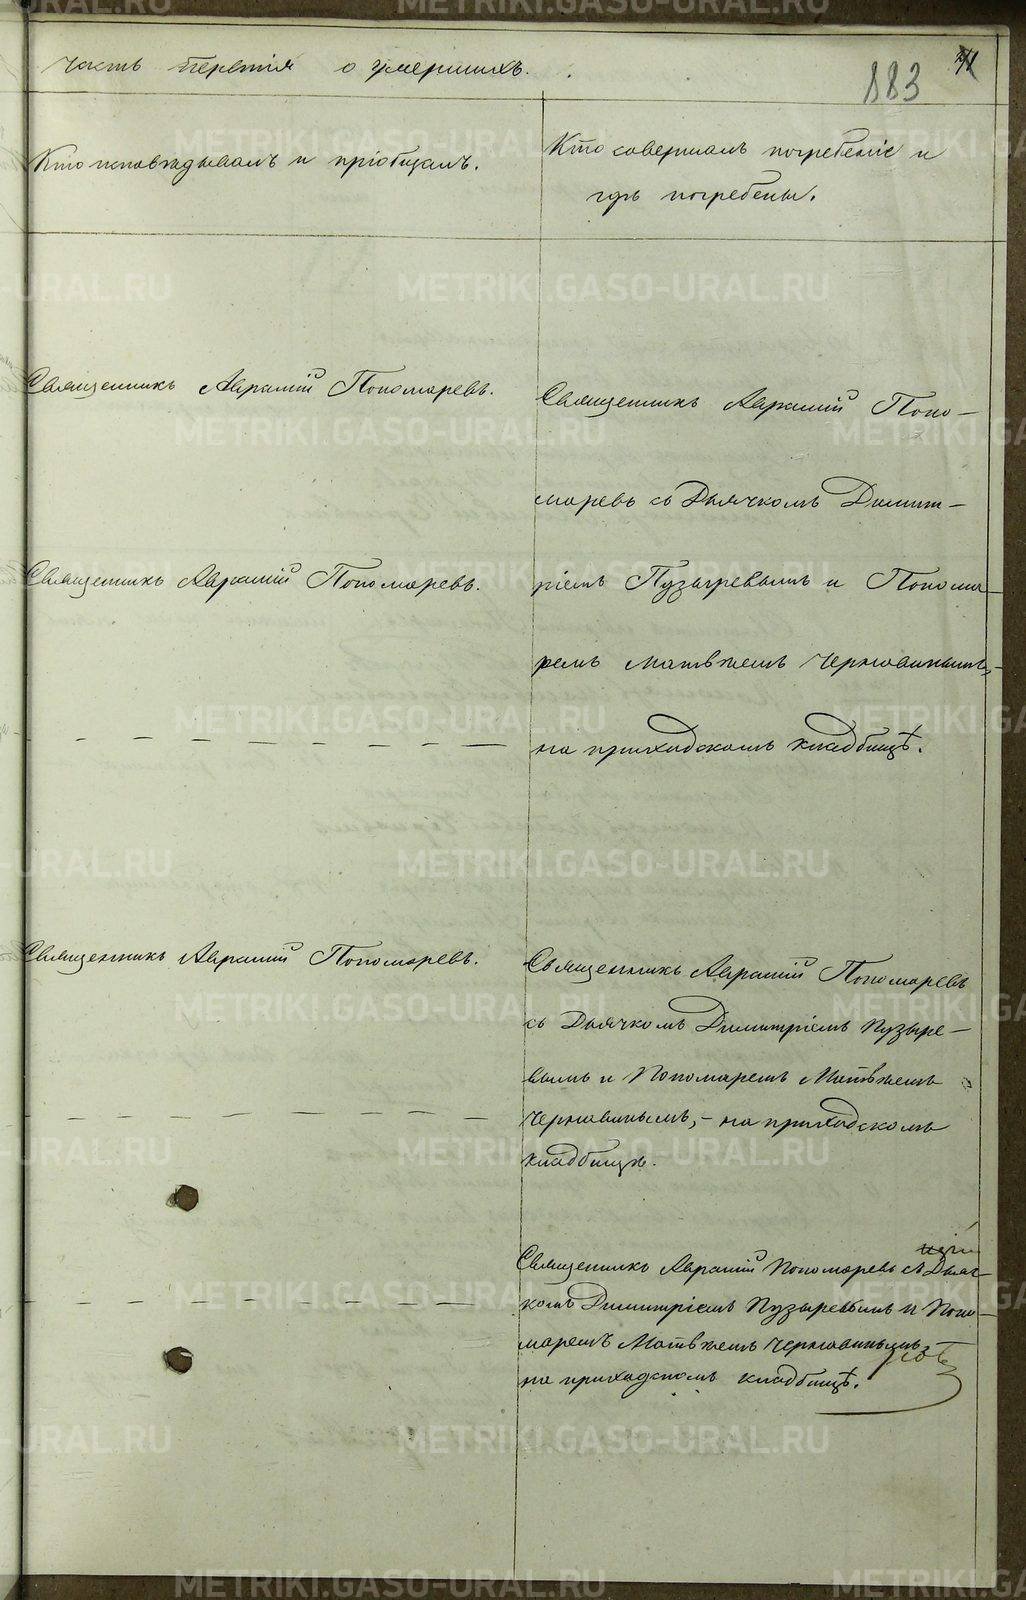 Часть третія о умершихъ.
883
Кто исповѣдывалъ и пріобщалъ.
Кто совершалъ погребеніе и
гдѣ погребены.
Священникъ Аврамій Пономаревъ.
Священникъ Аврамій Поно-
маревъ съ Дьячкомъ Димит-
Священникъ Аврамій Пономаревъ.
ріемъ Пузыревымъ и Понома-
ремъ Матвѣемъ Чернавинымъ,-
на приходскомъ кладбищѣ.
Священникъ Аврамій Пономаревъ.
Священникъ Аврамій Пономаревъ
съ Дьячкомъ Димитріемъ Пузыре-
вымъ и Пономаремъ Матвѣемъ
Чернавинымъ,- на приходскомъ
кладбищѣ.
Священникъ Аврамій Пономаревъ съ Дьяч-
комъ Димитріемъ Пузыревымъ и Поно-
маремъ Матвѣемъ Чернавинымъ
на приходскомъ кладбищѣ.
METRIKI.GASO-URAL.RU